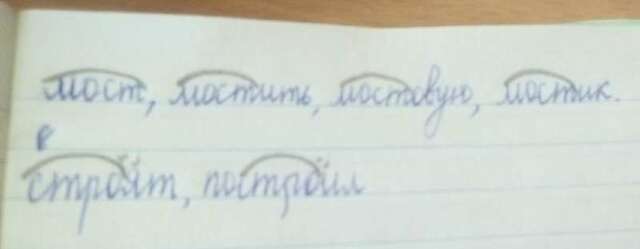 мост, мостить, мостовую, мостик.
в
стройт, построил